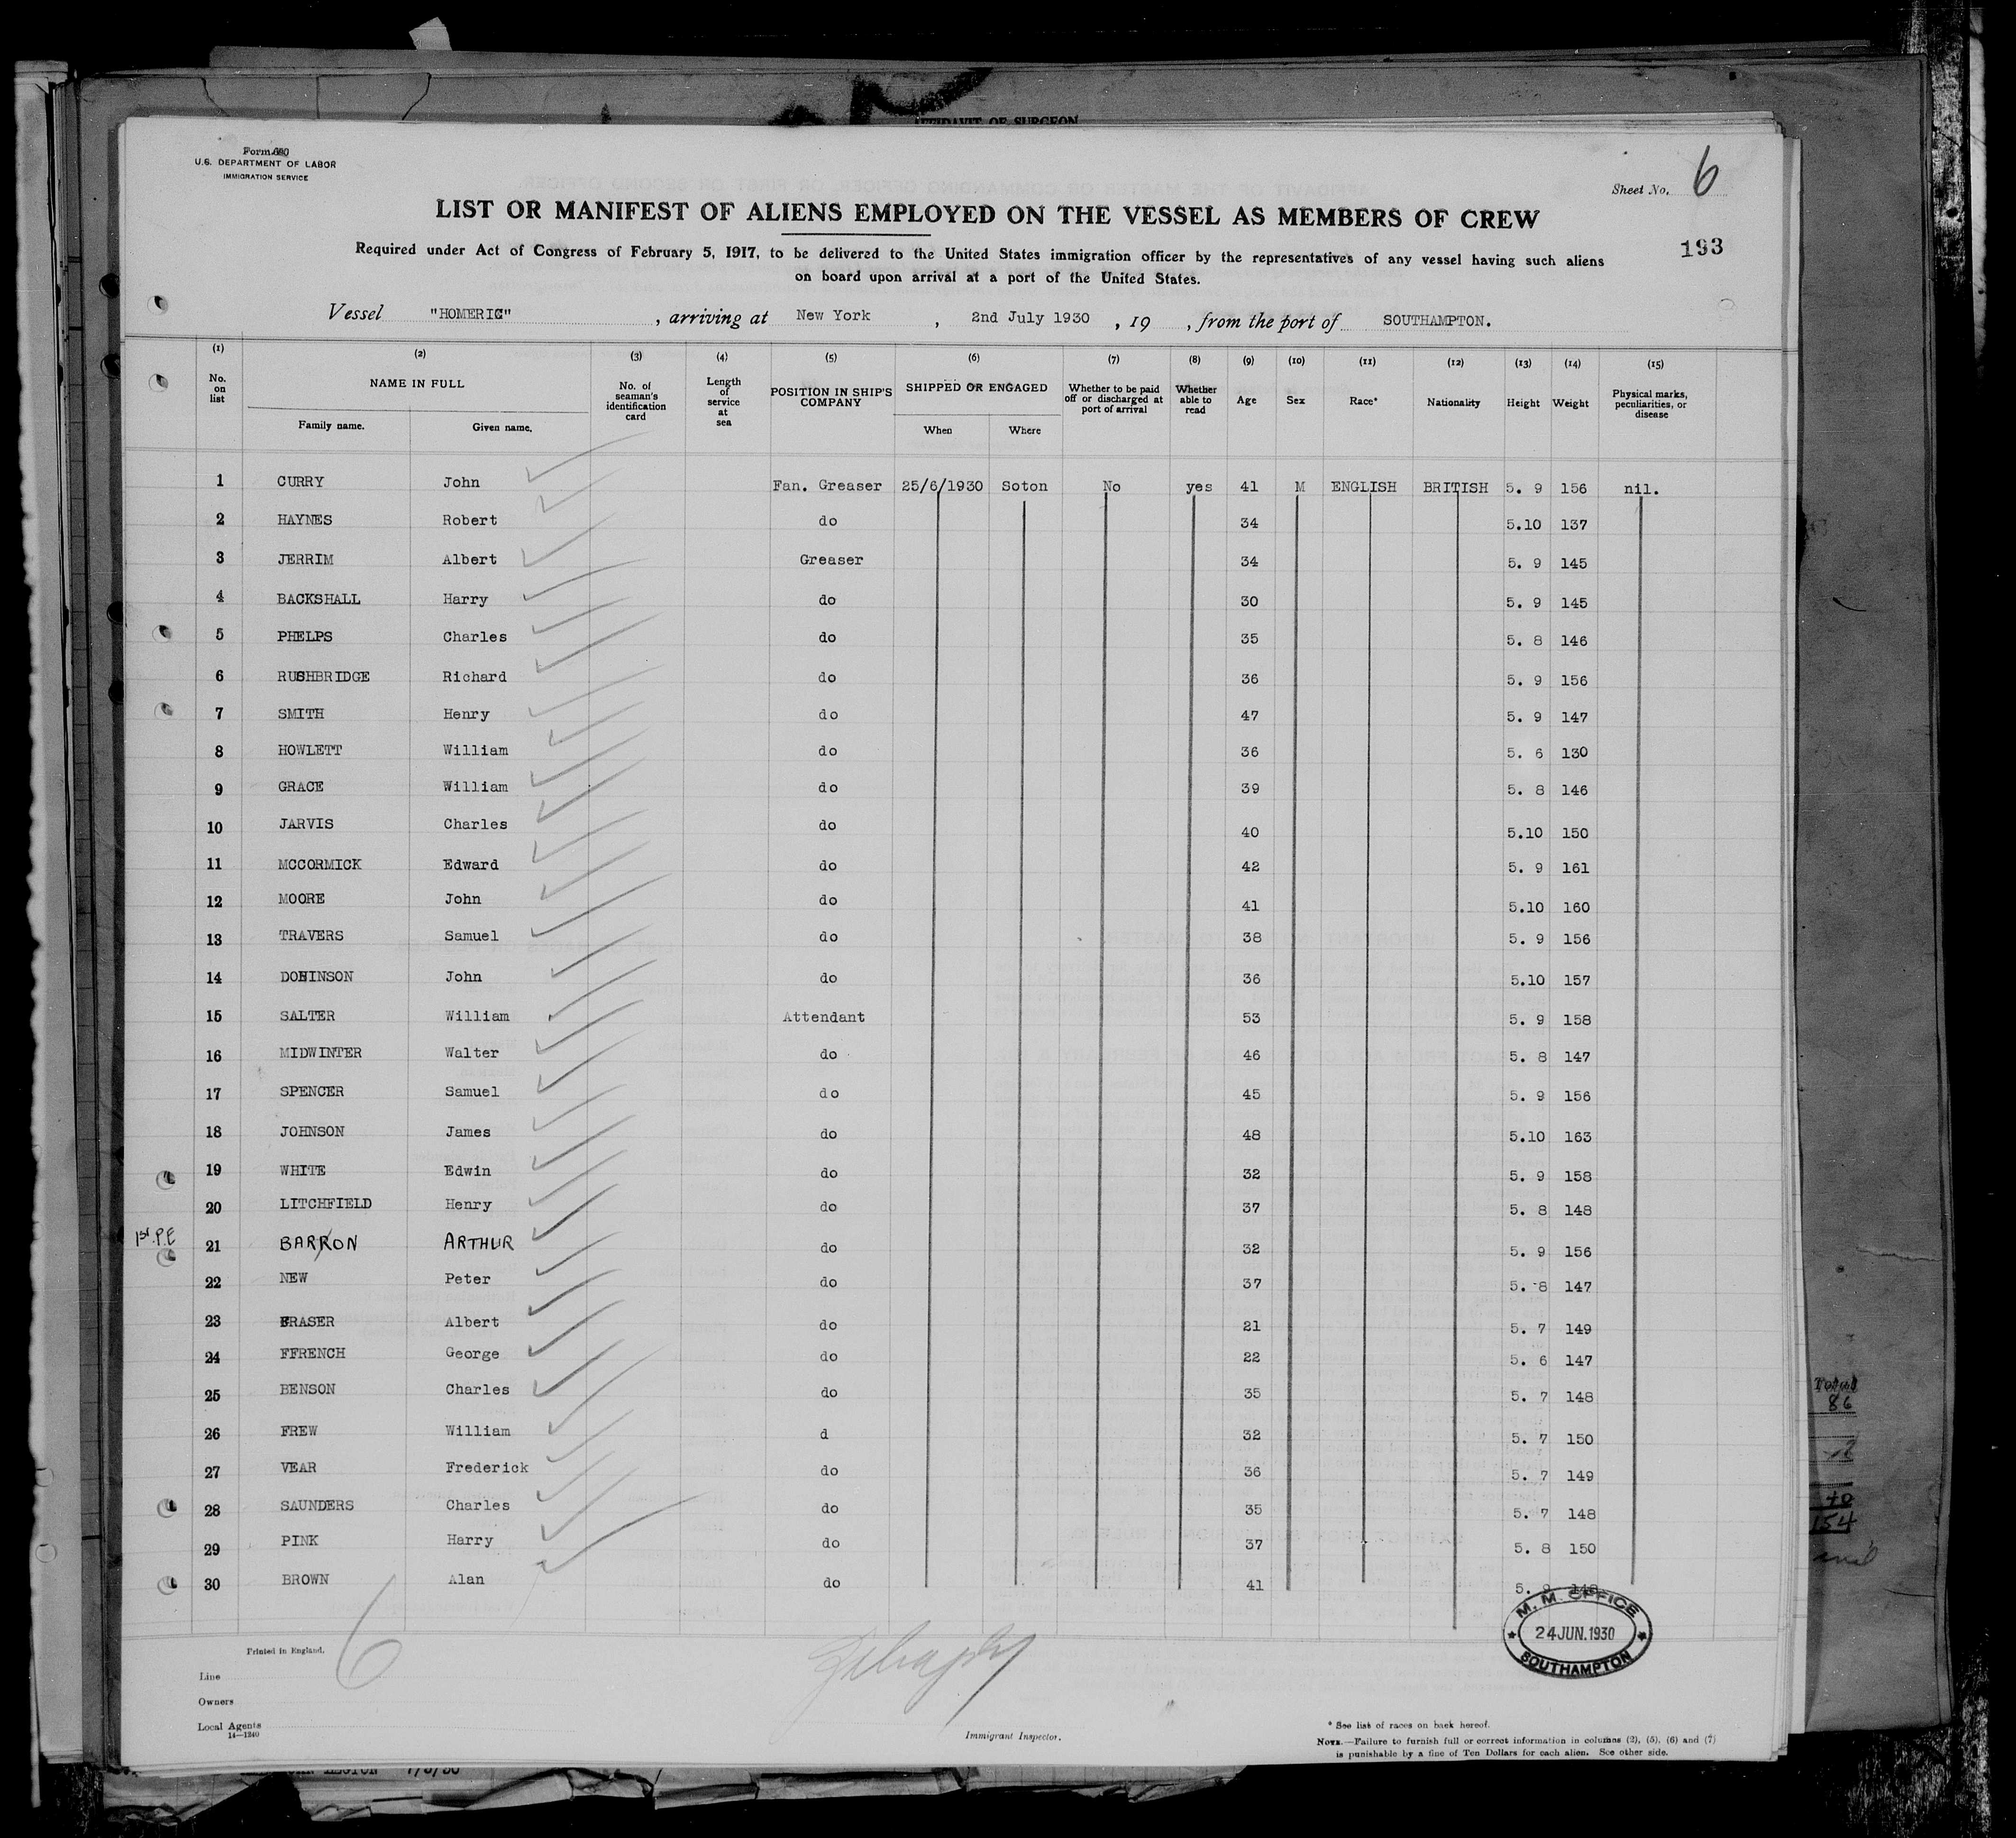 AFFIDAVIT OF SURGEON
Form 680
U.S. DEPARTMENT OF LABOR
IMMIGRATION SERVICE
Sheet No. 6
LIST OR MANIFEST OF ALIENS EMPLOYED ON THE VESSEL AS MEMBERS OF CREW
193
Required under Act of Congress of February 5, 1917, to be delivered to the United States immigration officer by the representatives of any vessel having such aliens
on board upon arrival at a port of the United States.
Vessel "HOMERIC" , arriving at New York , 2nd July 1930 , 19 , from the port of SOUTHAMPTON.
(1) (2) (3) (4) (5) (6) (7) (8) (9) (10) (11) (12) (13) (14) (15)
No. on list NAME IN FULL Family name. Given name. No. of seaman's identification card Length of service at sea POSITION IN SHIP'S COMPANY SHIPPED OR ENGAGED When Where Whether to be paid off or discharged at port of arrival Whether able to read Age Sex Race* Nationality Height Weight Physical marks, peculiarities, or disease
1 CURRY John Fan. Greaser 25/6/1930 Soton No yes 41 M ENGLISH BRITISH 5. 9 156 nil.
2 HAYNES Robert do 34 5.10 137
3 JERRIM Albert Greaser 34 5. 9 145
4 BACKSHALL Harry do 30 5. 9 145
5 PHELPS Charles do 35 5. 8 146
6 RUSHBRIDGE Richard do 36 5. 9 156
7 SMITH Henry do 47 5. 9 147
8 HOWLETT William do 36 5. 6 130
9 GRACE William do 39 5. 8 146
10 JARVIS Charles do 40 5.10 150
11 MCCORMICK Edward do 42 5. 9 161
12 MOORE John do 41 5.10 160
13 TRAVERS Samuel do 38 5. 9 156
14 DOBINSON John do 36 5.10 157
15 SALTER William Attendant 53 5. 9 158
16 MIDWINTER Walter do 46 5. 8 147
17 SPENCER Samuel do 45 5. 9 156
18 JOHNSON James do 48 5.10 163
19 WHITE Edwin do 32 5. 9 158
20 LITCHFIELD Henry do 37 5. 8 148
1st. P.E 21 BARRON ARTHUR do 32 5. 9 156
22 NEW Peter do 37 5. 8 147
23 FRASER Albert do 21 5. 7 149
24 FFRENCH George do 22 5. 6 147
25 BENSON Charles do 35 5. 7 148
26 FREW William d 32 5. 7 150
27 VEAR Frederick do 36 5. 7 149
28 SAUNDERS Charles do 35 5. 7 148
29 PINK Harry do 37 5. 8 150
30 BROWN Alan do 41 5.
M. M. OFFICE
24 JUN. 1930
SOUTHAMPTON
Printed in England.
6
Line
Owners
Local Agents
14—1240
Immigrant Inspector.
* See list of races on back hereof.
NOTE.—Failure to furnish full or correct information in columns (2), (5), (6) and (7)
is punishable by a fine of Ten Dollars for each alien. See other side.
Total
86
40
154